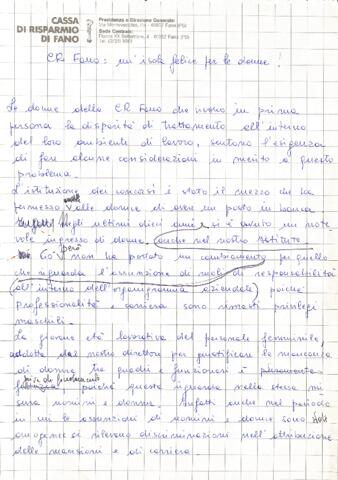 CASSA
DI RISPARMIO
DI FANO
Presidenza e Direzione Generale:
Sede Centrale:
CR Fano: un'isola felice per le donne?
Le donne della CR Fano che vivono in prima
persona la disparità di trattamento all'interno
del loro ambiente di lavoro, sentono l'esigenza
di fare alcune considerazioni in merito a questo
problema.
L'istituzione dei concorsi è stato il mezzo che ha
permesso alle donne di avere un posto in banca
negli ultimi dieci anni si è avuto un note
vole ingresso di donne anche nel nostro istituto
Ciò però non ha portato un cambiamento per quello
che riguarda l'assunzione di ruoli di responsabilità
(all'interno dell'organigramma aziendale) poiché
professionalità e carriera sono rimasti privilegi
maschili.
La giovane età lavorativa del personale femminile,
addotta dal nostro direttore per giustificare la mancanza
di donne tra quadri e funzionari è
poiché questo riguarda nella stessa mi
sura uomini e donne. Infatti anche nel periodo
in cui le assunzioni di uomini e donne sono state
omogenee si rilevano discriminazioni nell'attribuzione
delle mansioni e di carriera.